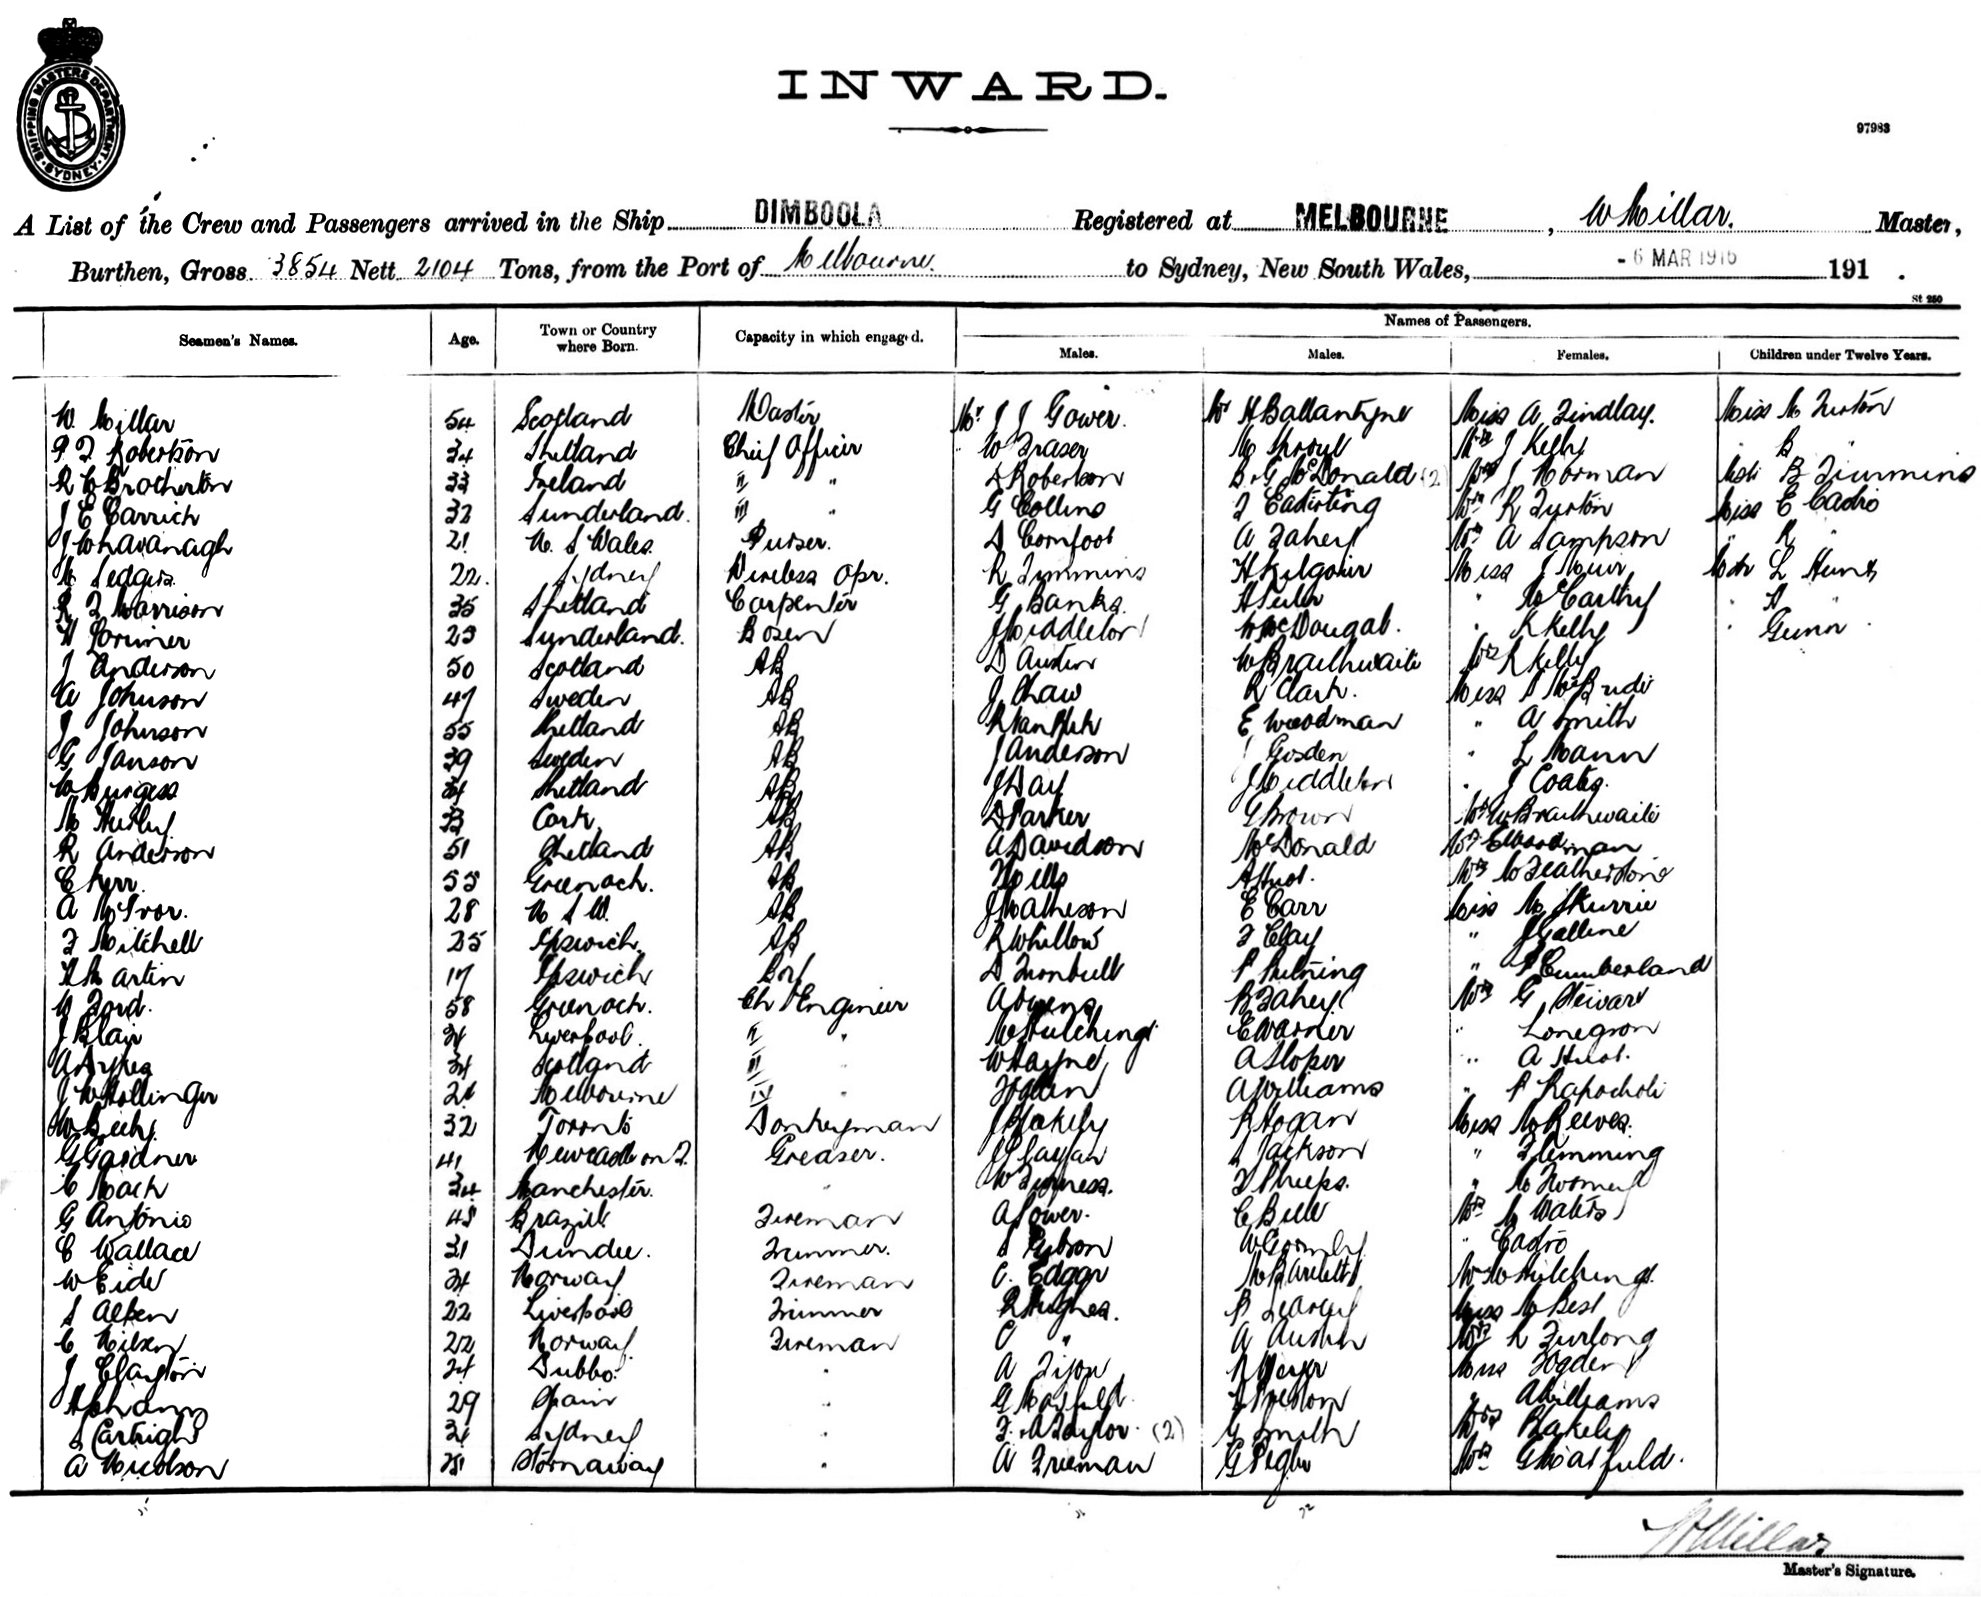 SHIPPING MASTERS DEPARTMENT
SYDNEY
INWARD.
97983
A List of the Crew and Passengers arrived in the Ship DIMBOOLA Registered at MELBOURNE, W Millar. Master,
Burthen, Gross 3854 Nett 2104 Tons, from the Port of Melbourne. to Sydney, New South Wales, - 6 MAR 1916 191 .
St 250
Seamen's Names. Age. Town or Country where Born. Capacity in which engaged. Names of Passengers.
Males. Males. Females. Children under Twelve Years.
W. Millar 54 Scotland Master Mr J J Gower. Mr H Ballantyne Miss A Findlay. Miss M Turton
Robertson 34 Shetland Chief Officer W Fraser M Mrs J Kelly B "
Brotherton 33 Ireland II " D Robertson B. G McDonald (2) Mrs J Norman B Timmins
J E Carrick 32 Sunderland. III " G Collins Mrs R Turton Miss E Cadro
J W Kavanagh 21 N. S Wales. Purser. D Cornfoot A Fahey Mrs A Sampson " R "
22. Sydney Wireless Opr. R Timmins H Kilgour Miss J Muir L Hunt
Morrison 35 Shetland Carpenter G Banks. " McCarthy "
H Lorimer 23 Sunderland. Bosen J Middleton McDougal. " K Kelly " Gunn
J Anderson 50 Scotland AB D Austin W Braithwaite Mrs R Kelly
A Johnson 47 Sweden AB J Shaw R Clark. Miss McBride
J Johnson 55 Shetland AB E Woodman " A Smith
G Janson 39 Sweden AB J Anderson J Gosden " L Mann
W Burgess 34 Shetland AB J Day J Middleton " J Coates.
M 33 Cork AB D Parker G Brown Mrs W Braithwaite
R Anderson 51 Shetland AB A Davidson McDonald Mrs E Woodman
C Kerr. 55 Greenock. AB Mrs M Featherstone
A McIvor. 28 N S W. AB J Matheson E Carr Miss M Skurrie
F Mitchell 25 Ipswich. AB R Whillow F Clay "
H Martin 17 Ipswich Boy D Turnbull " Cumberland
W Ford. 58 Greenock. Ch Engineer A Owens B Fahey Mrs G Stewart
J Blair 34 Liverpool. II " M Hutchings E Warner "
A Dykes 34 Scotland III " W Hayne A Sloper " A
J W Hollinger 24 Melbourne IV " A Williams "
32 Toronto Donkeyman J Blakely R Hogan Miss M Reeves.
G Gardner 41 Newcastle on T. Greaser. Jackson " Flemming
C Mack 34 Manchester. " Phelps. " M Twomey
G Antonio 48 Brazil Fireman A Power. C Bell Mrs M Waters
C Wallace 31 Dundee. Trimmer. S Gibson W Gormly " Cadro
W Eide 34 Norway Fireman C. Edgar M Bartlett Mrs M Hutchings.
S Alken 22 Liverpool Trimmer R Hughes. Miss M Best
C Nilsen 22 Norway. Fireman C " A Austin Mrs L Furlong
J Clayton 24 Dubbo. " A Miss Fogden
29 Spain " G Masfield Preston " A Williams
S Cartright 34 Sydney " F. A Taylor. (2) G Smith Mrs Blakely
A Nicolson 28 Stornaway " A Freeman G Pegler Mrs G Masfield.
W Millar
Master's Signature.